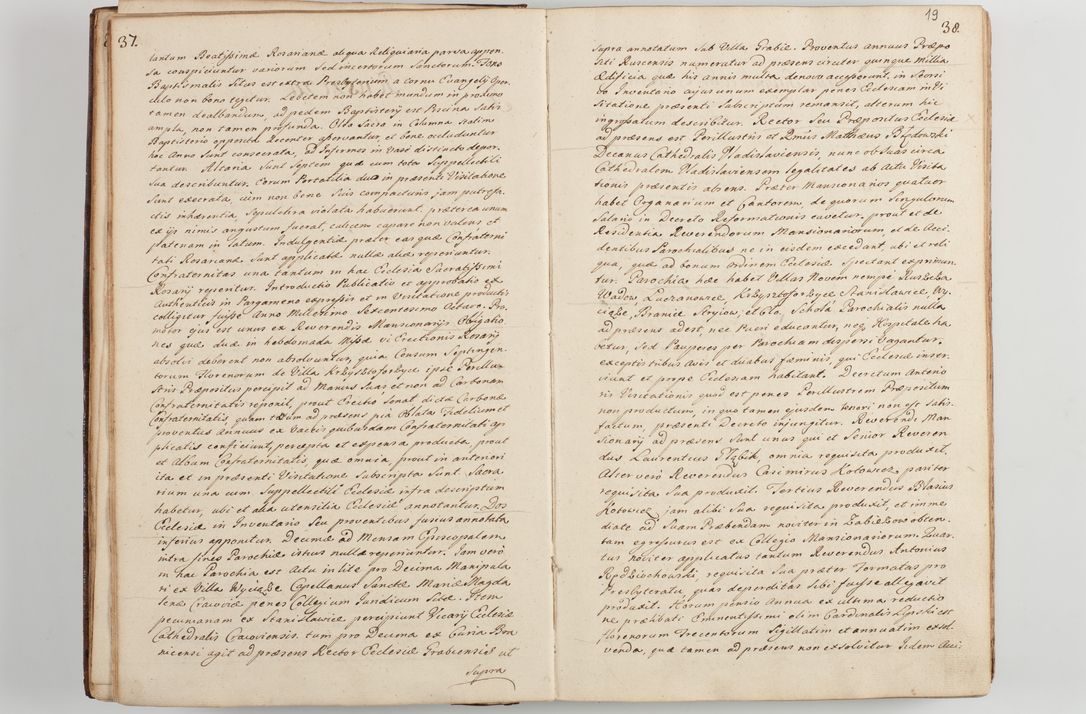 37.
tantum Beatissimæ Rosarianæ aliqua Reliquiaria parva appen-
sa conspiciuntur variorum sed incertorum Sanctorum. Fons
Baptismalis Situs est extra Presbyterium a cornu Evangelij Oper-
culo non bono tegitur. Lebetem non habet mundum in proximo
tamen dealbandum, ad pedem Baptisterij est Piscina Satis
ampla, non tamen profunda. Olea Sacra in Columna Statim
Baptisterio opposita decenter aservantur et bene occluduntur
hoc Anno Sunt consecrata, ad Infirmos in vase distincto depor-
tantur. Altaria Sunt Septem quæ cum tota Suppellectili
sua describuntur. Eorum Portatilia duo in præsenti Visitatione
Sunt execrata, cum non bene Suis compacturis jam putrefa-
ctis inhærentia Sepulchra violata habuerunt. præterea unum
ex ijs nimis angustum fuerat, calicem capere non valens et
patenam in latum. Indulgentiæ præter eas quæ Confraterni
tati Rosarianæ Sunt applicatæ nullæ aliæ reperiuntur.
Confraternitas una tantum in hac Ecclesia Sacratissimi
Rosarij reperitur. Introductio Publicatio et approbatio ex
authenticis in Pergameno expressis et in Visitatione productis
colligitur fuisse Anno Millesimo Sexcentesimo Octavo. Pro-
motor ejus est unus ex Reverendis Mansionarijs Obligatio-
nes quæ duæ in hebdomada Missæ vi Erectionis Rosarij
absolvi deberent non absolvuntur, quia Censum Septingen-
torum Florenorum de Villa Krzysztoforzyce ipse Perillus-
tris Præpositus percipit ad Manus Suas et non ad Carbonam
Confraternitatis reponit, prout Erectio Sonat dicta Carbonæ
Confraternitatis, quam etiam ad præsens pia Oblata Fidelium et
proventus annuus ex Vaccis quibusdam Confraternitati ap-
plicatis conficiunt, percepta et expensa producta, prout
et Album Confraternitatis, quæ omnia prout in anteriori
ita et in præsenti Visitatione Subscripta Sunt. Sacra-
rium una cum Suppellectili Ecclesiæ infra descriptum
habetur, ubi et alia utensilia Ecclesiæ annotantur. Dos
Ecclesiæ in Inventario Seu proventibus fusius annotata
inferius apponitur. Decimæ ad Mensam Episcopalem
intra fines Parochiæ istius nullæ reperiuntur. Jam vero
in hac Parochia est Actu in lite pro Decima Manipula
ri ex Villa Wyciąże Capellanus Sanctæ Mariæ Magda
lenæ Cracoviæ penes Collegium Iuridicum Sitæ. Item
pecuniariam ex Stanisławice percipiunt Vicarij Ecclesiæ
Cathedralis Cracoviensis. tum pro Decima ex Curia Bra
nicensi agit ad præsens Rector Ecclesiæ Grabiensis ut
Supra
19
38.
Supra annotatum Sub Villa Grabie. Proventus annuus Præpo
siti Ruscensis numeratur ad præsens circiter quinque Millia
Ædificia quæ his annis multa de novo accesserunt, in Seorsi
vo Inventario cujus unum exemplar penes Ecclesiam in Vi
sitatione præsenti Subscriptum remansit, alterum hic
ingrossatum describitur. Rector Seu Præpositus Ecclesiæ
ad præsens est Perillustris et Rmus Matthæus
Decanus Cathedralis Vladislaviensis, nunc ob Suas circa
Cathedralem Vladislaviensem legalitates ab Actu Visita
tionis præsentis absens. Præter Mansionarios quatuor
habet Organarium et Cantorem, de quorum Singulorum
Salario in Decreto Reformationis cavetur. prout et de
Residentia Reverendorum Mansionariorum, et de Acci-
dentibus Parochialibus ne in eisdem excedant, ubi et reli
qua, quæ ad bonum ordinem Ecclesiæ Spectant exprimun
tur. Parochia hæc habet Villas Novem nempe Ruszcza
Wadow, Lucranowice, Krzysztoforzyce Stanisławice, Wy
ciąże, Branice Stryiow, et Glo, Schola Parochialis nulla
ad præsens adest, nec Pueri educantur, neq Hospitale ha-
betur, Sed Pauperes per Parochiam dispersi vagantur,
exceptis tribus Avis et duabus fæminis, qui Ecclesiæ inser
viunt et prope Ecclesiam habitant. Decretum Anterio
ris Visitationis quod est penes Perillustrem Præpositum
non productum, in quo tamen ejusdem tenori non est Satis-
factum, præsenti Decreto injungitur. Reverendi Man
sionarij ad præsens Sunt unus qui et Senior Reveren
dus Laurentius omnia requisita produxit.
Alter vero Reverendus Casimirus Kotowicz, pariter
requisita Sua produxit. Tertius Reverendus Blasius
Kotowicz, jam alibi Sua requisita produxit, et imme
diate ad Suam Præbendam noviter in obten-
tam egressurus est ex Collegio Mansionariorum. Quar-
tus noviter applicatus tantum Reverendus Antonius
requisita Sua præter Formatas pro
Presbyteratu, quas deperditas Sibi fuisse allegavit
produxit. Horum pensio Annua ex ultima reductio
ne præhabiti Eminentissimi olim Cardinalis Lipski est
florenorum Trecentorum Sigillatim et annuatim exsol-
venda, quæ tamen ad præsens non exsolvitur Iidem Acci